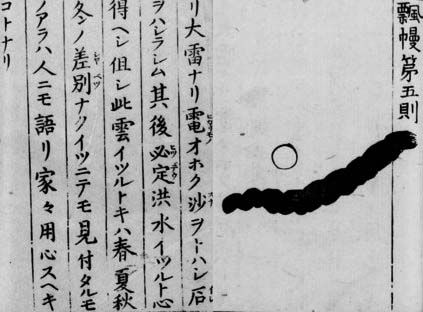 飄幔第五則
リ大雷ナリ電オホク沙ヲトハシ石
ヲハシラシム其後必定洪水イツルト心
得ヘシ但シ此雲イツルトキハ春夏秋
冬ノ差別ナクイツニテモ見付タルモ
ノアラハ人ニモ語リ家々用心スヘキ
コトナリ